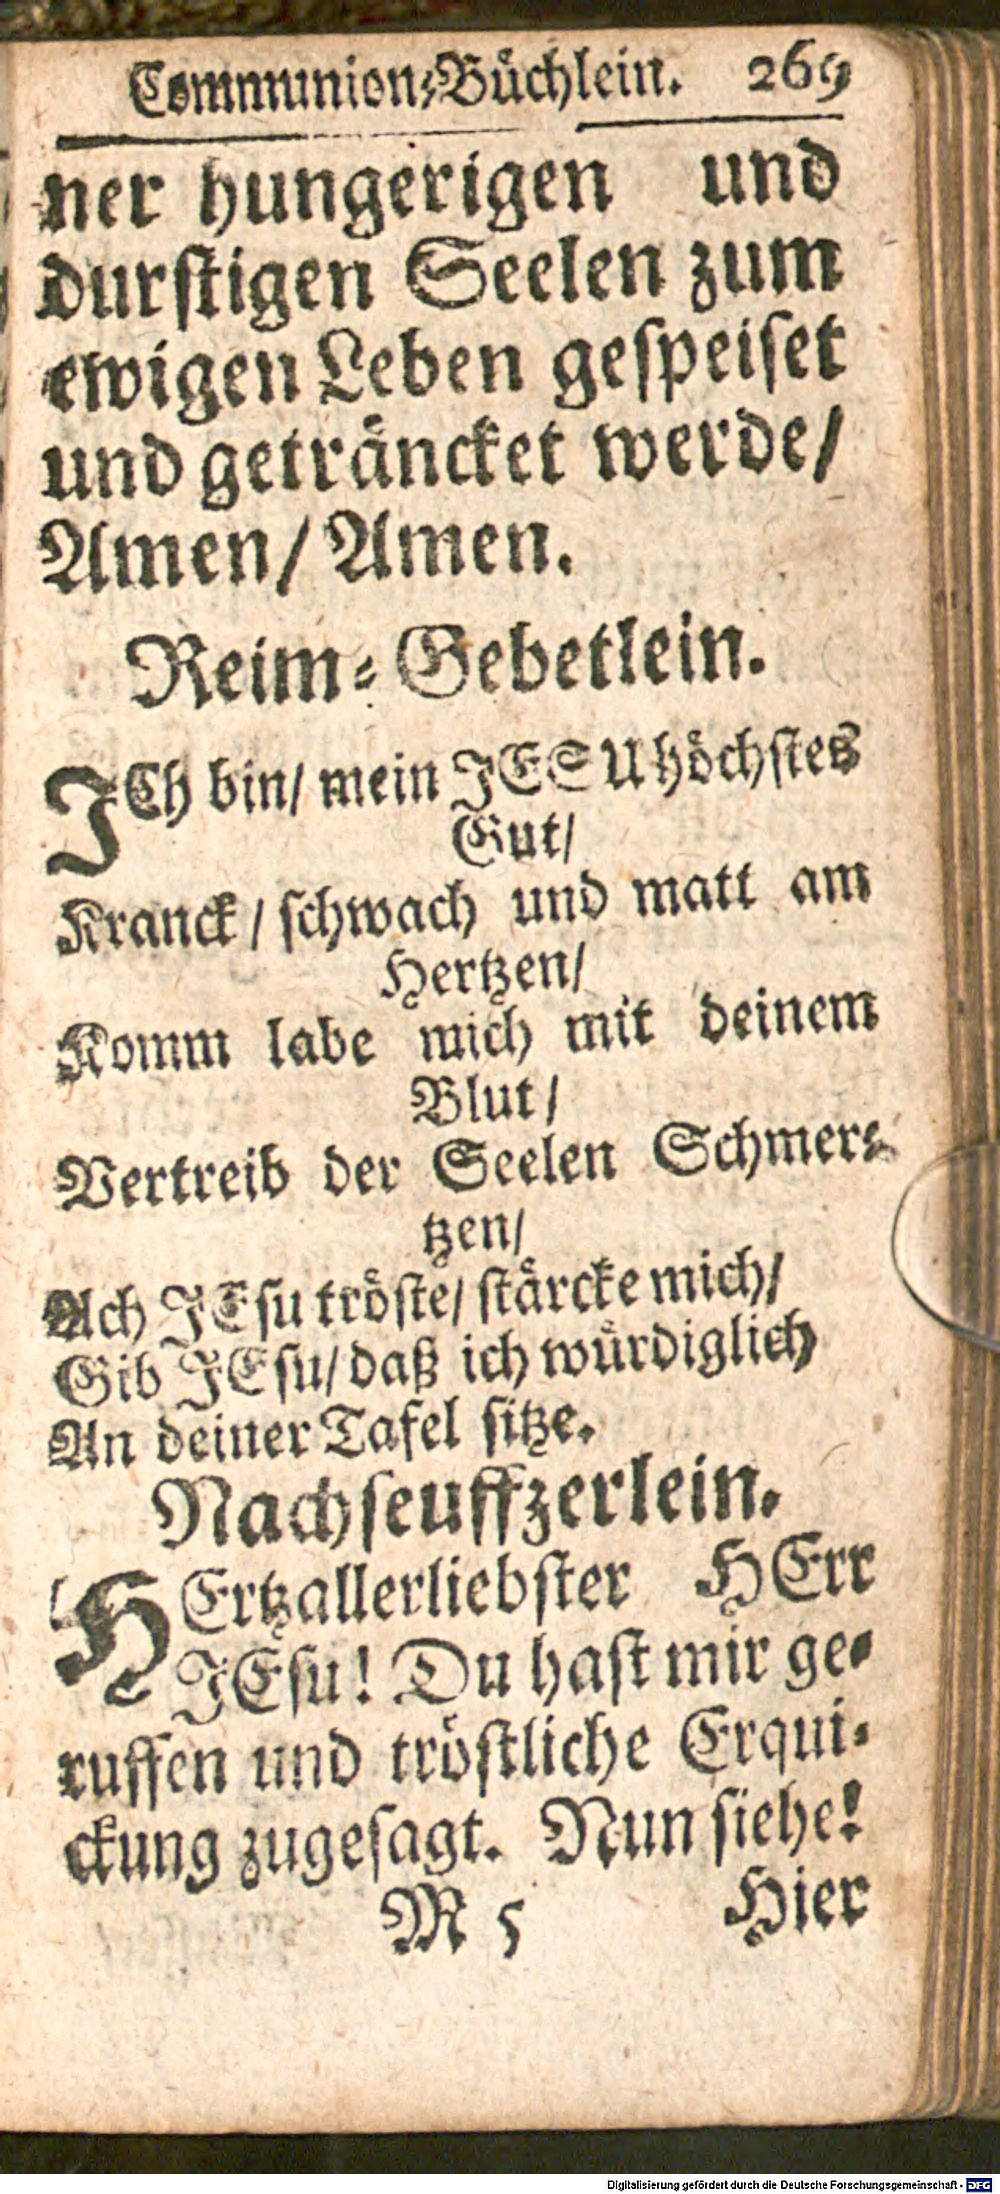 Communion-Büchlein. 269
ner hungerigen und
durstigen Seelen zum
ewigen Leben gespeiset
und geträncket werde/
Amen/ Amen.
Reim-Gebetlein.
ICh bin/ mein JESU höchstes
Gut/
Kranck/ schwach und matt am
Hertzen/
Komm labe mich mit deinem
Blut/
Vertreib der Seelen Schmer-
tzen/
Ach JEsu tröste/ stärcke mich/
Gib JEsu/ daß ich würdiglich
An deiner Tafel sitze.
Nachseuffzerlein.
HErtzallerliebster HErr
JEsu! Du hast mir ge-
ruffen und tröstliche Erqui-
ckung zugesagt. Nun siehe!
M 5 Hier
Digitalisierung gefördert durch die Deutsche Forschungsgemeinschaft - DFG